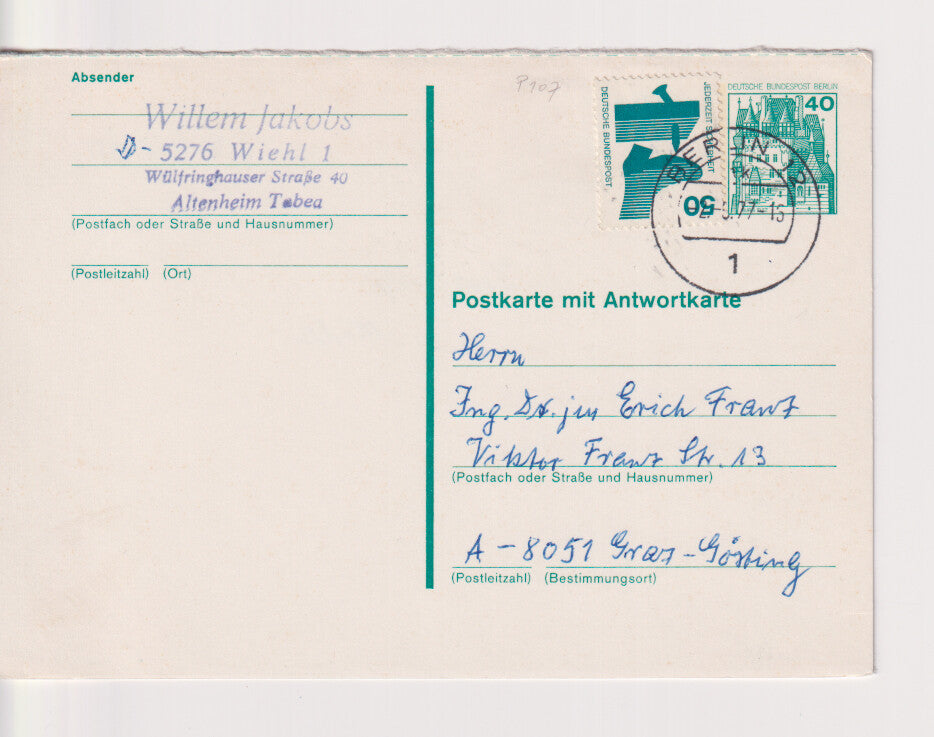 Absender
P107
DEUTSCHE BUNDESPOST BERLIN
40
JEDERZEIT SICHERHEIT
DEUTSCHE BUNDESPOST
50
Willem Jakobs
D - 5276 Wiehl 1
Wülfringhauser Straße 40
Altenheim Tabea
(Postfach oder Straße und Hausnummer)
(Postleitzahl) (Ort)
BERLIN 12
77-16
1
Postkarte mit Antwortkarte
Herrn
Ing. Dr. jur Erich Franz
Viktor Franz Str. 13
(Postfach oder Straße und Hausnummer)
A - 8051 Graz-Gösting
(Postleitzahl) (Bestimmungsort)